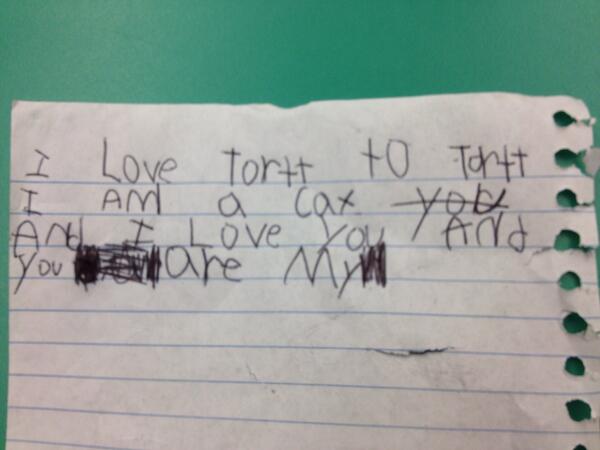 I Love Tortt to Tortt
I AM a Cat you
And I Love you And
you are My